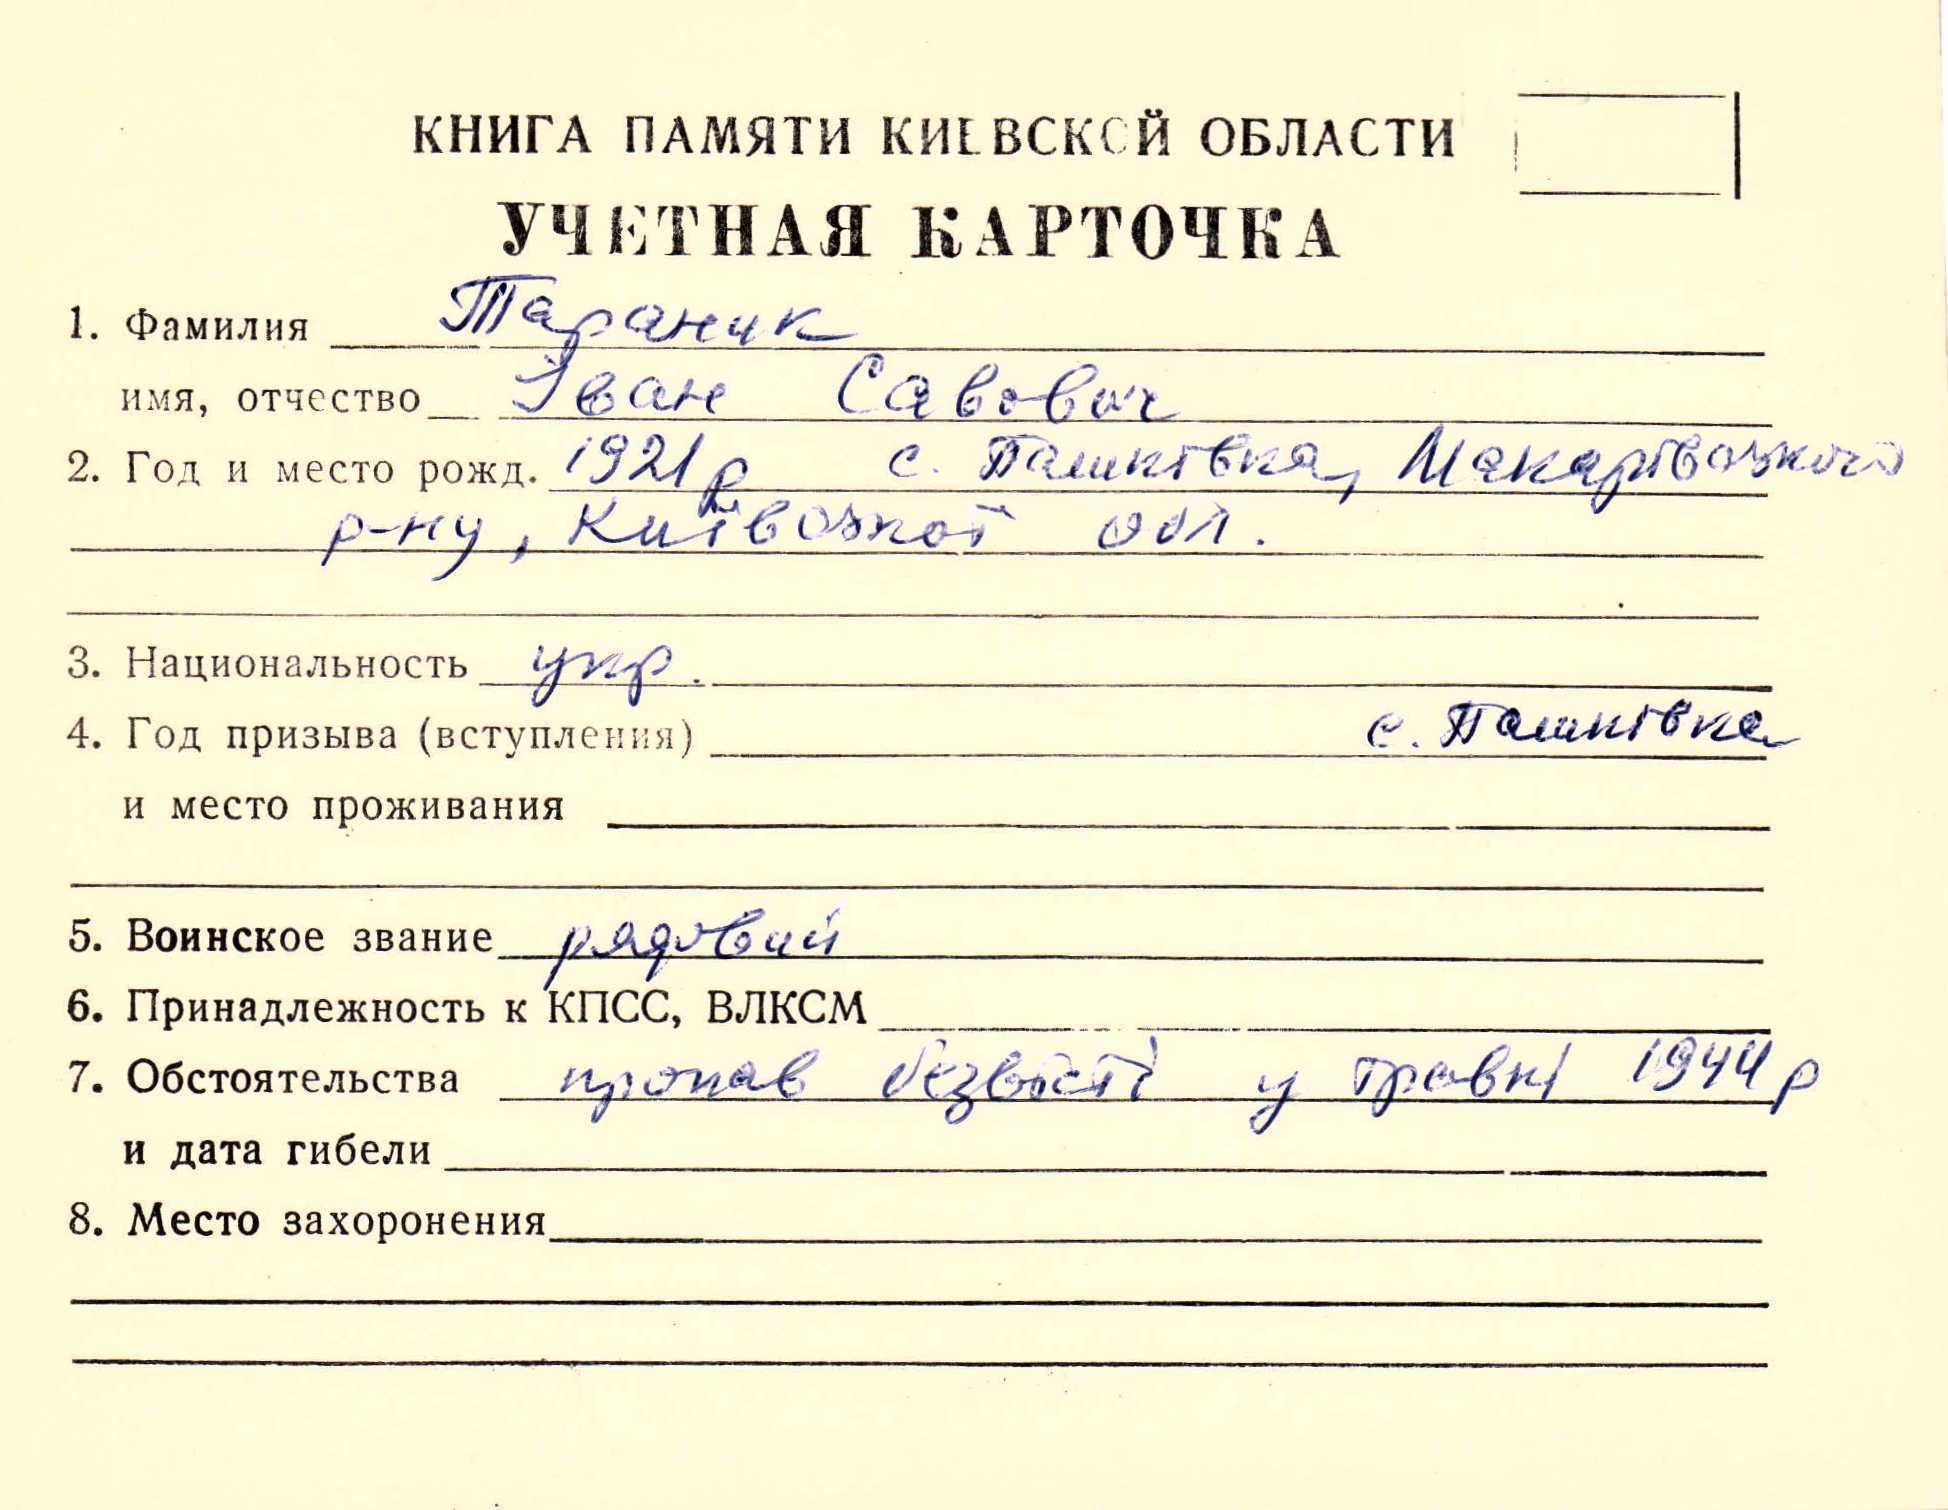 КНИГА ПАМЯТИ КИЕВСКОЙ ОБЛАСТИ
УЧЕТНАЯ КАРТОЧКА
1. Фамилия Таранчик
имя, отчество Іван Савович
2. Год и место рожд. 1921 р с. Пашківка, Макарівського
р-ну, Київської обл.
3. Национальность укр.
4. Год призыва (вступления) с. Пашківка
и место проживания
5. Воинское звание рядовий
6. Принадлежность к КПСС, ВЛКСМ
7. Обстоятельства пропав безвісті у травні 1944 р
и дата гибели
8. Место захоронения